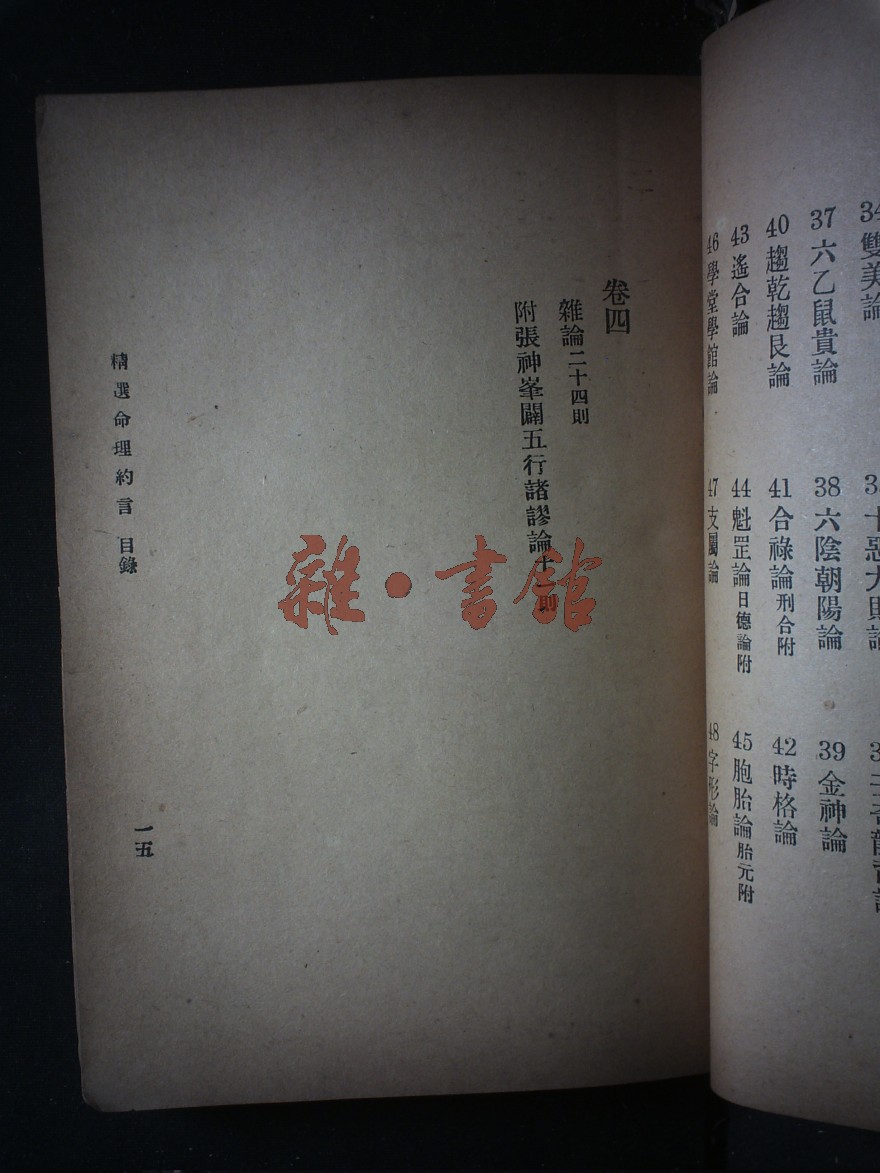 34 雙美論
37 六乙鼠貴論
40 趨乾趨艮論
43 遙合論
46 學堂學館論
十惡大敗論
38 六陰朝陽論
41 合祿論 刑合附
44 魁罡論 日德論附
47 支屬論
39 金神論
42 時格論
45 胞胎論 胎元附
48 字形論
卷四
雜論 二十四則
附張神峯闢五行諸謬論十一則
精選命理約言 目錄
一五
雜·書館